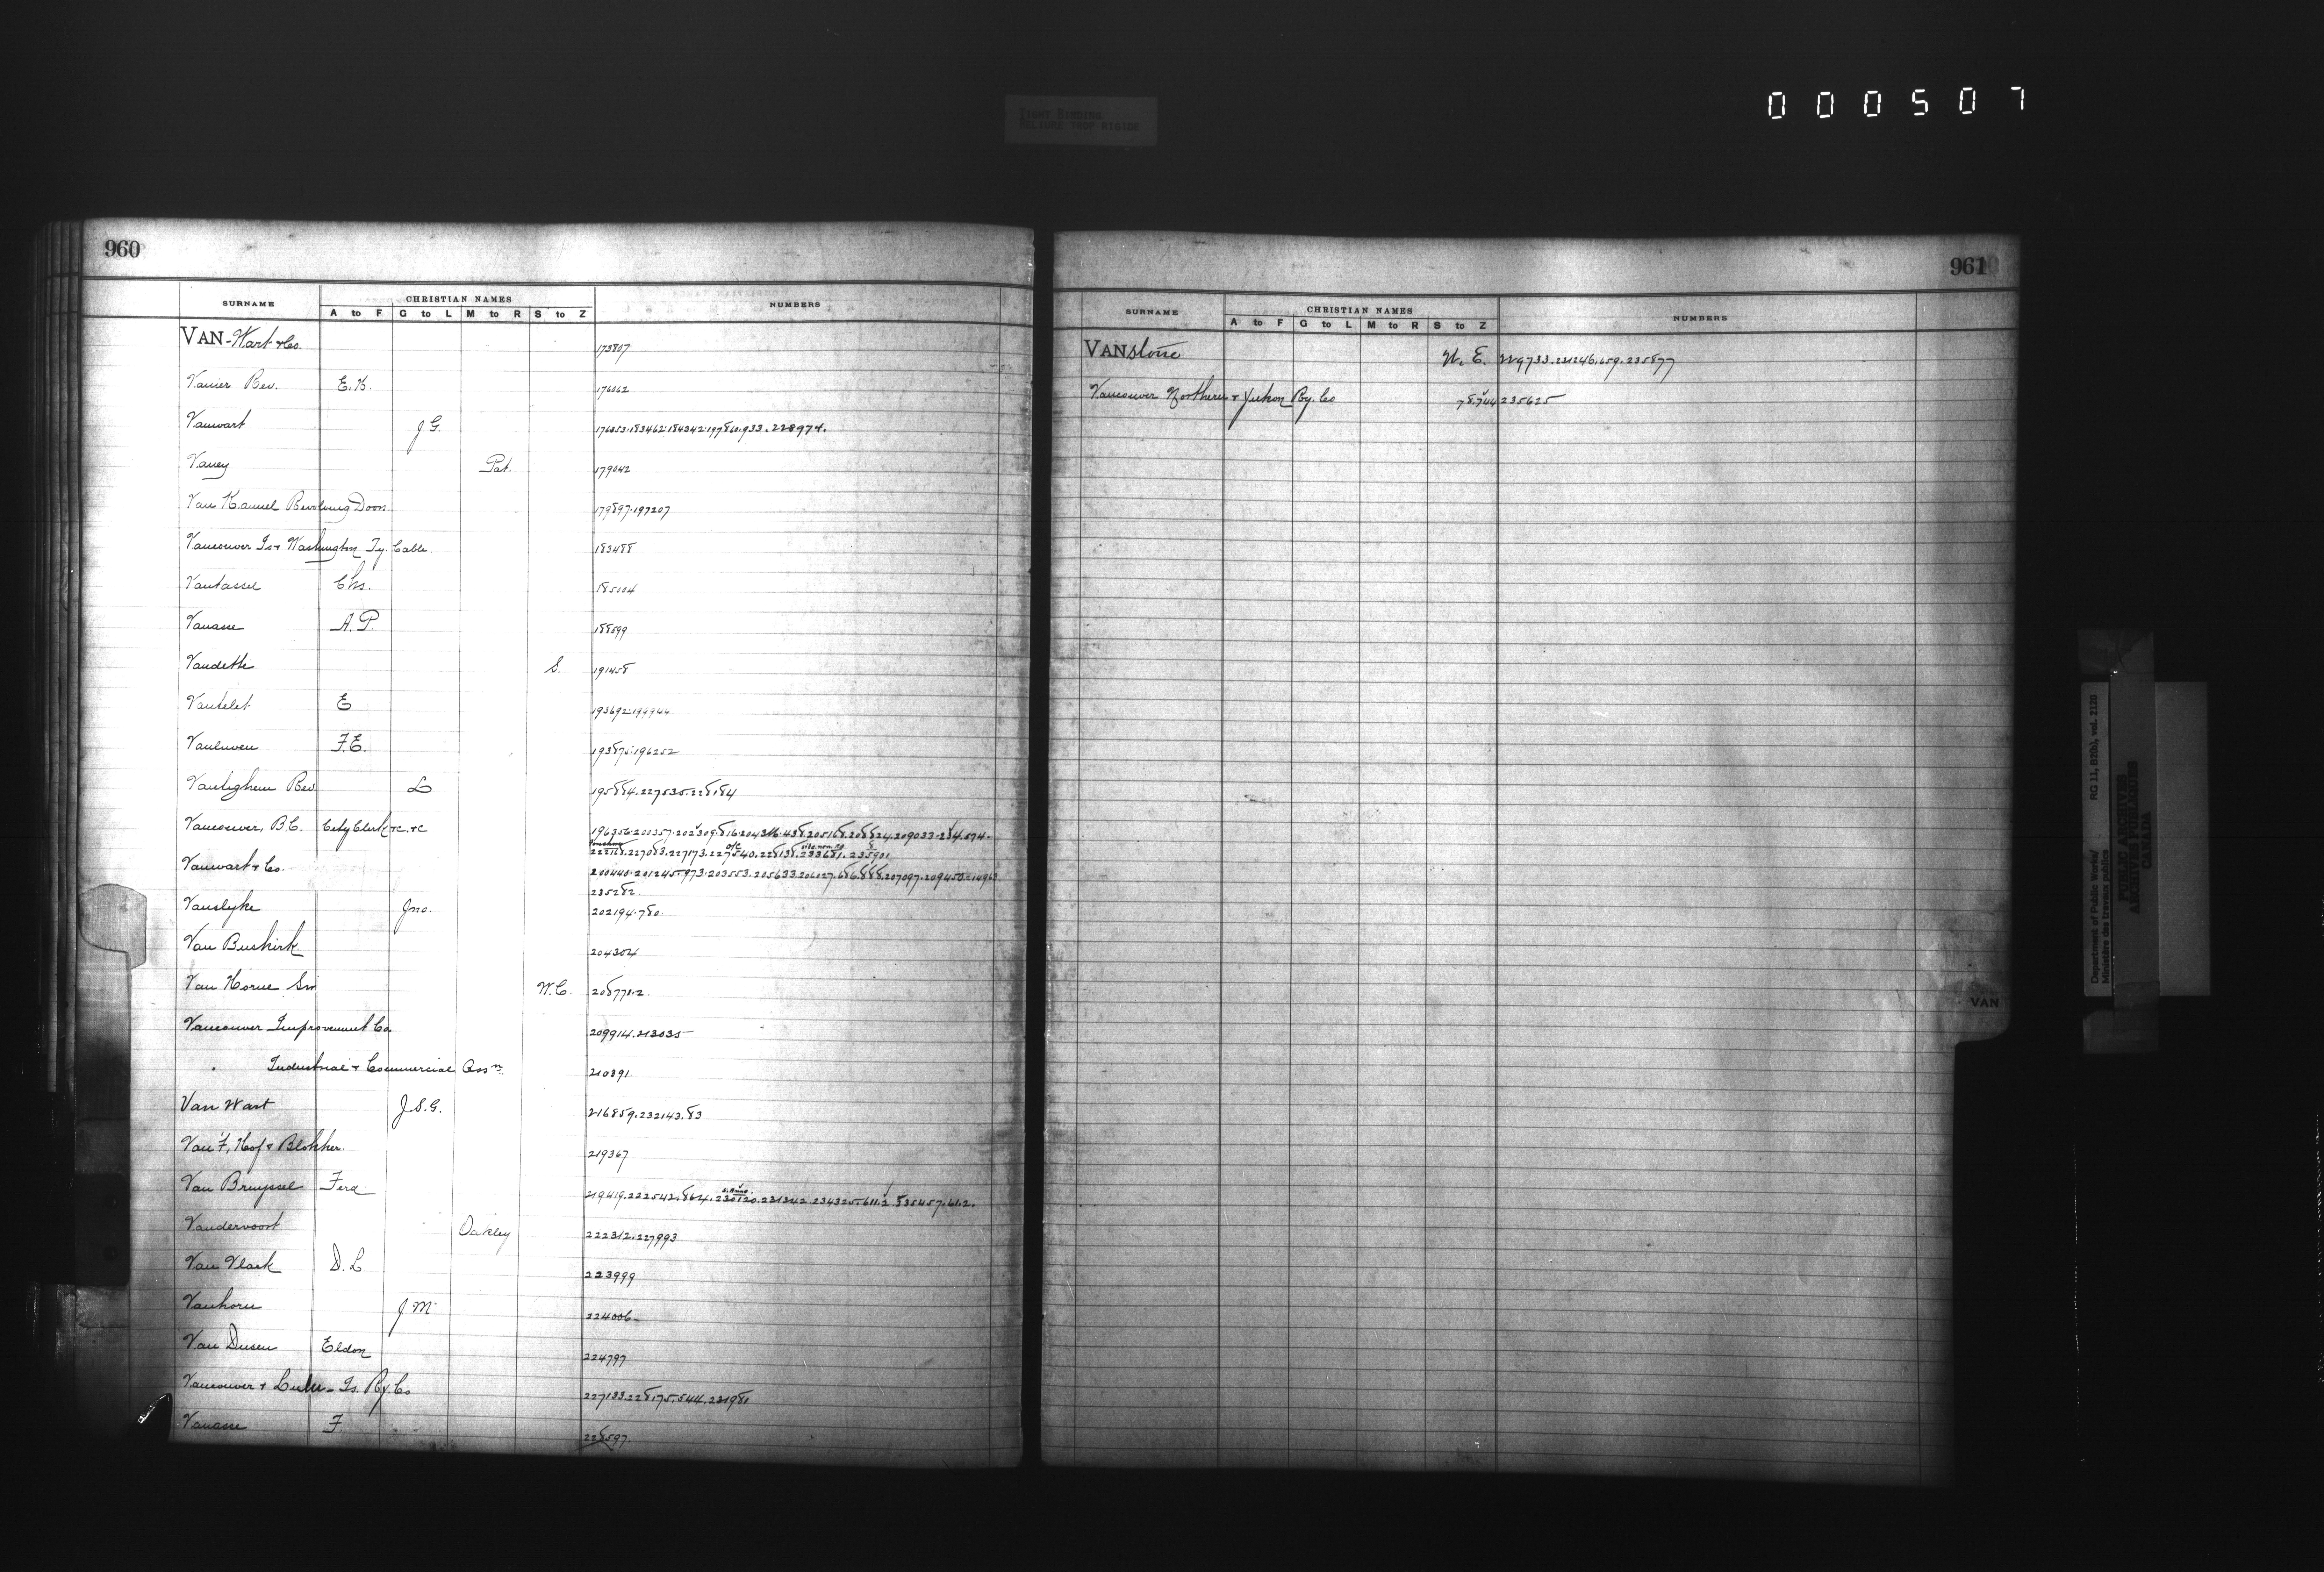 TIGHT BINDING
RELIURE TROP RIGIDE
000507
960
SURNAME
CHRISTIAN NAMES
NUMBERS
A to F G to L M to R S to Z
VAN-Wart & Co. 173807
Vanier Rev. E.H. 176062
Vanwart J.G. 176053.183462.184342.197860.933.228974.
Vaney Pat. 179042
Van Kannel Revolving Door. 179897.197207
Vancouver Is & Washington Ty. Cable. 183488
Vantassel Chs. 185004
Vanasse A.P. 188599
Vandette S. 191458
Vantelet E 193692.199944
Vanluven F.E. 193875.196252
Vantighem Rev. L 195884.227535.228184
Vancouver, B.C. City Clerk &c. &c 196356.201357.202309.816.204316.438.205168.208824.209033.234.574.
227083.227173.227540.228138.233681.235901
Vanwart & Co. 200440.201245.973.203553.205633.206027.686.888.207097.209450.
235282.
Vanslyke Jno. 202194.780.
Van Buskirk 204304
Van Horne Sir W.C. 208771.2.
Vancouver Improvement Co. 209914.213035
" Industrial & Commercial Assn 210891.
Van Wart J.S.G. 216859.232143.83
Van 't, Hof & Blokker. 219367
Van Bruyssel Ferd 219419.222542.864.230120.231342.234325.611.2.235457.61.2.
Vandervoort Oakley 222312.227993
Van Vlack D.L 223999
Vanhorn J M 224006
Van Dusen Eldon 224797
Vancouver & Lulu Is. Ry. Co 227133.228175.544.231981
Vanasse F. 228597.
961
SURNAME
CHRISTIAN NAMES
NUMBERS
A to F G to L M to R S to Z
VANstone W. E. 229733.231246.659.235877
Vancouver Northern & Yukon Ry. Co 78.744 235625
VAN
Department of Public Works/ RG 11, B2(b), vol. 2120
Ministère des travaux publics
PUBLIC ARCHIVES
ARCHIVES PUBLIQUES
CANADA